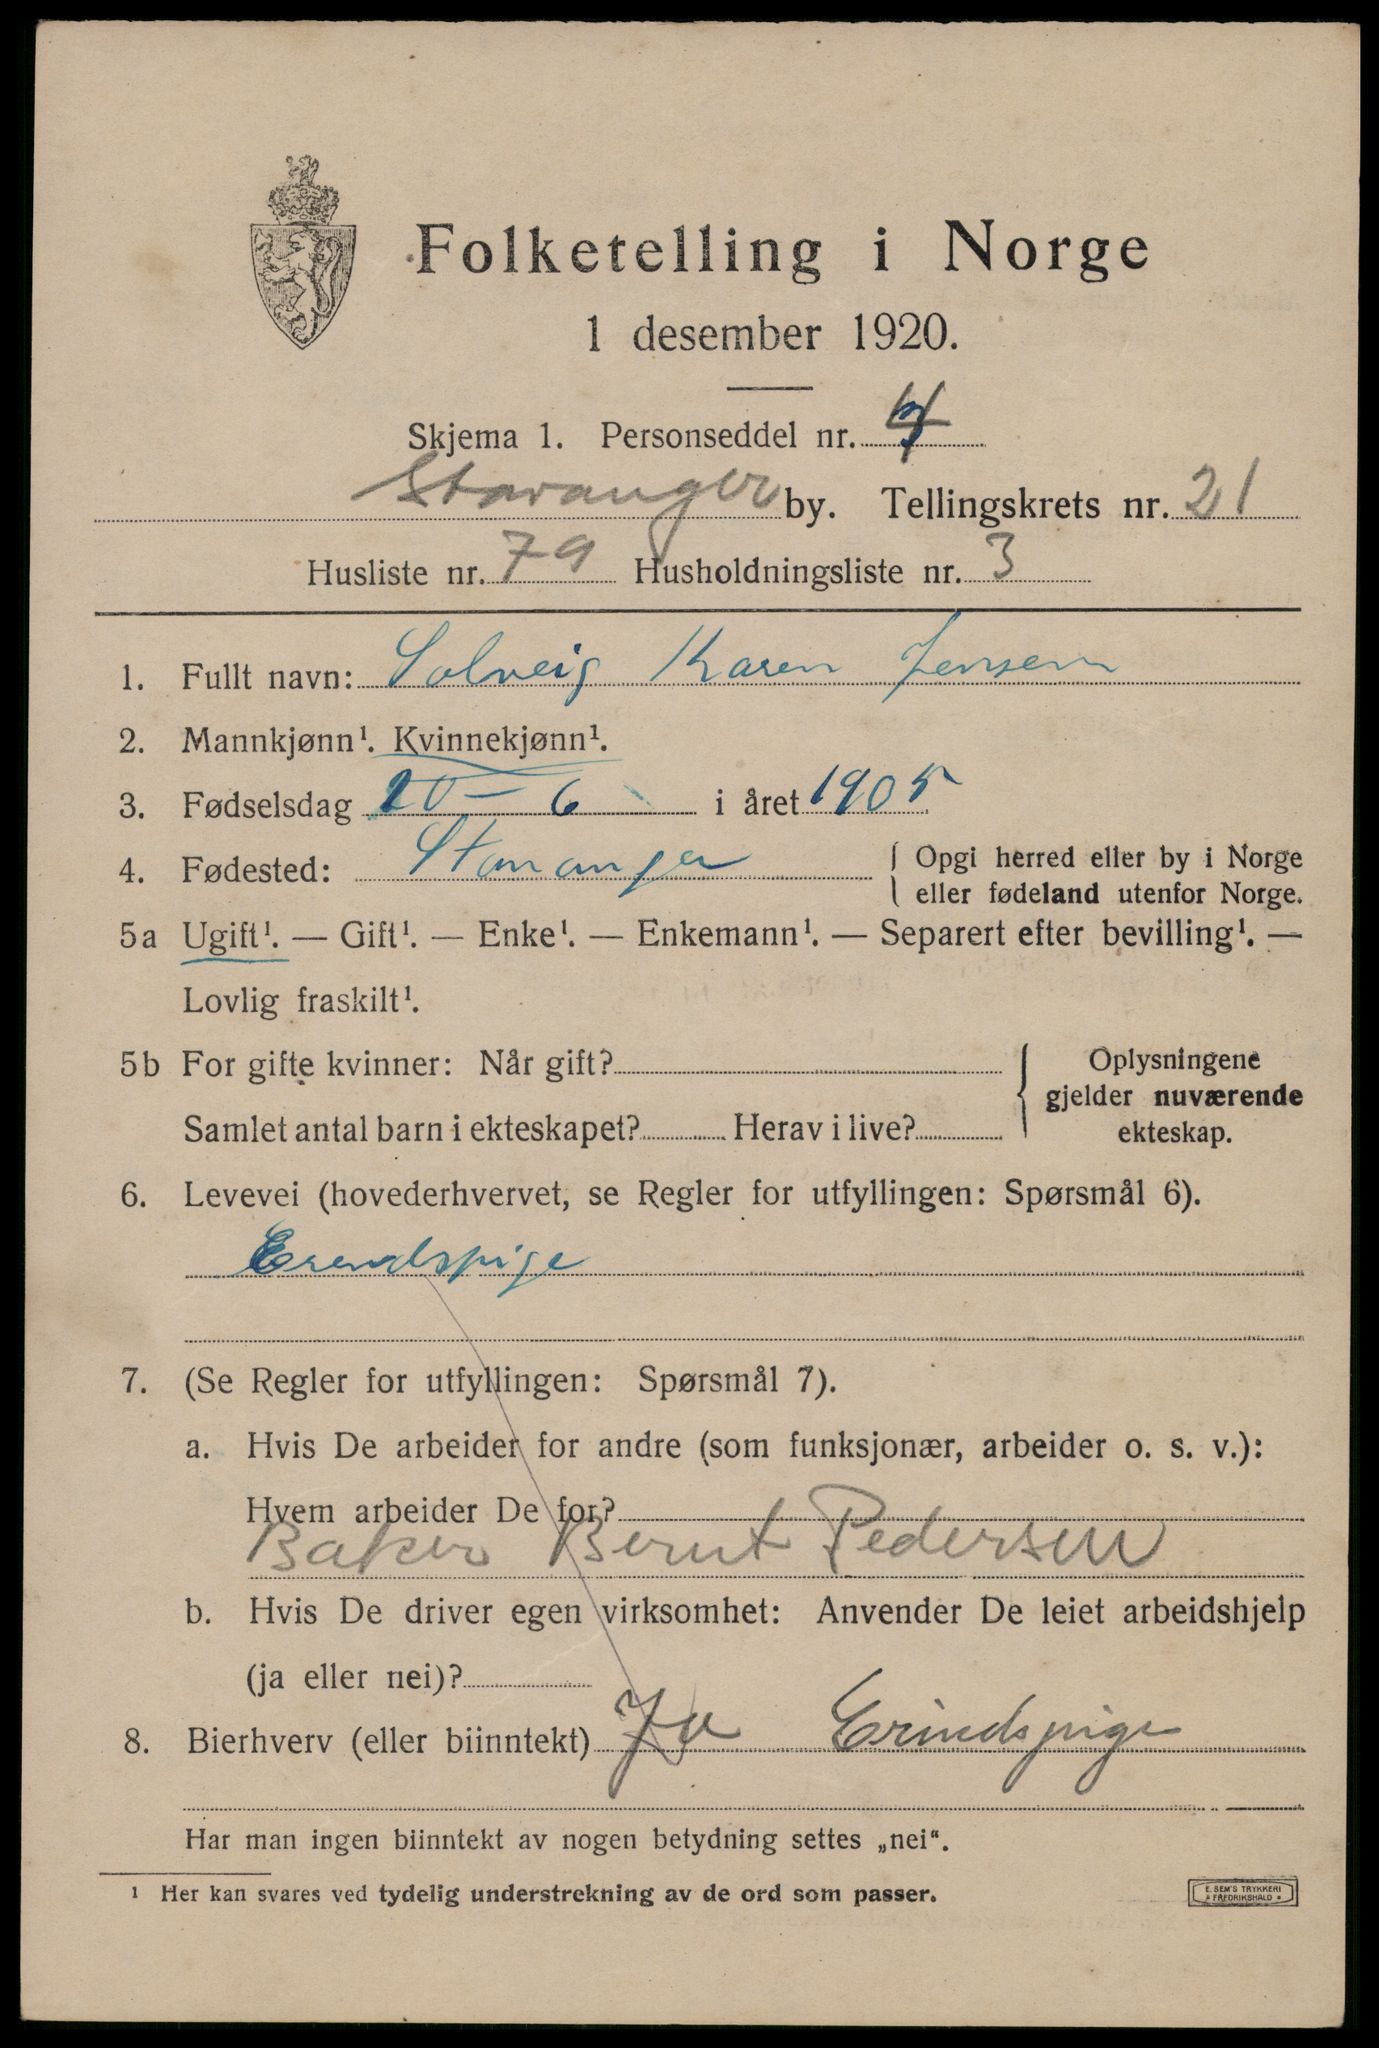 Folketelling i Norge
1 desember 1920.
Skjema 1. Personseddel nr. 4
Stavanger by. Tellingskrets nr. 21
Husliste nr. 79 Husholdningsliste nr. 3
1. Fullt navn: Solveig Karen Jensen
2. Mannkjønn¹. Kvinnekjønn¹.
3. Fødselsdag 20 – 6 i året 1905
4. Fødested: Stavanger { Opgi herred eller by i Norge
eller fødeland utenfor Norge.
5a Ugift¹. — Gift¹. — Enke¹. — Enkemann¹. — Separert efter bevilling¹. —
Lovlig fraskilt¹.
5b For gifte kvinner: Når gift? { Oplysningene
gjelder nuværende
Samlet antal barn i ekteskapet? Herav i live? ekteskap.
6. Levevei (hovederhvervet, se Regler for utfyllingen: Spørsmål 6).
Erendspige
7. (Se Regler for utfyllingen: Spørsmål 7).
a. Hvis De arbeider for andre (som funksjonær, arbeider o. s. v.):
Hvem arbeider De for?
Baker Bernt Pedersen
b. Hvis De driver egen virksomhet: Anvender De leiet arbeidshjelp
(ja eller nei)?
8. Bierhverv (eller biinntekt) Ja Erindspige
Har man ingen biinntekt av nogen betydning settes „nei“.
¹ Her kan svares ved tydelig understrekning av de ord som passer.
E. SEM'S TRYKKERI
FREDRIKSHALD